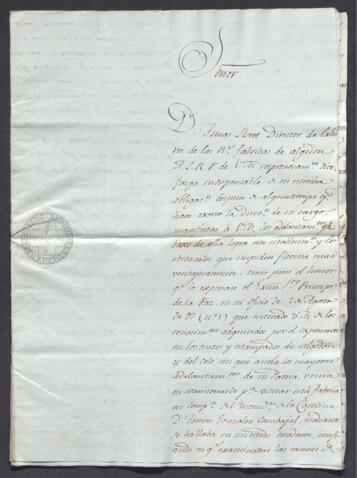 Señor
D. Tomas Perez Director de labo
res de las Rs. fabricas de algodon
A. L. R. P. de V. M. respetuosamte. dice
juzga indispensable à su
obligacn. despues de algun tiempo q.
hace exerce la Direcn. de su cargo,
manifestar à V. M. los adelantamtos. q.
baxo de ella logra este establecimto. y los
obstaculos que impiden florezca mas
ventajosamente: tuvo pues el honor
qe. le expresare el Exmo. Sor. Principe
de la Paz, en su oficio de 2 de Agosto
de 97 (nº. 1) que enterado V. M. de los
conocimtos. adquiridos por el exponente
en los tintes y estampados de Algodon
y del celo con que anela los mayores
adelantamtos. de su Patria, venia
en comisionarlo pa. visitar una fabrica
en compa. del Intendte. de la Carolina
D. Tomas Gonzalez Carabajal, mediante
se hallaba en un estado decadente, confi
ando en qe. examinadas las causas de